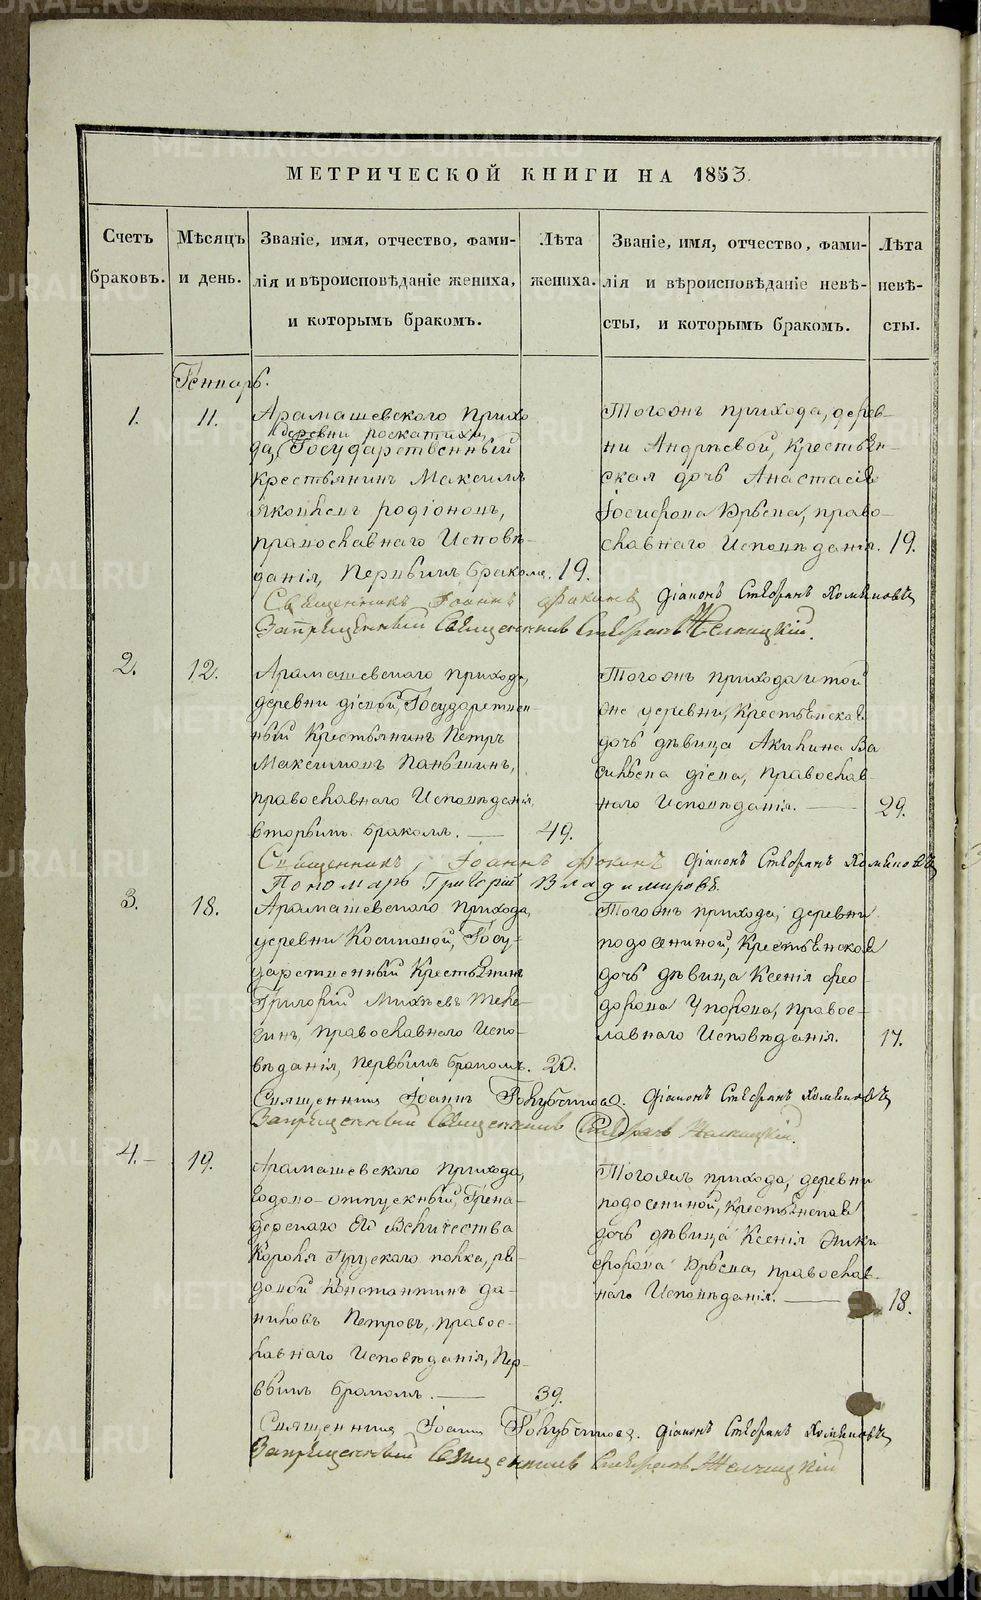 МЕТРИЧЕСКОЙ КНИГИ НА 1853.
Счетъ браковъ.
Мѣсяцъ и день.
Званіе, имя, отчество, фами-
лія и вѣроисповѣданіе жениха,
и которымъ бракомъ.
Лѣта жениха.
Званіе, имя, отчество, фами-
лія и вѣроисповѣданіе невѣ-
сты, и которымъ бракомъ.
Лѣта невѣ-
сты.
Генварь.
1.
11.
Арамашевского прихо
деревни роскатихи,
да, Государственный
крестьянинъ Максимъ
Яковлевъ родіоновъ,
православнаго Исповѣ-
данія, Первымъ бракомъ.
19.
Тогожъ прихода, дерев-
ни Андрѣевой, крестьян-
ская дочь Анастасія
Іосифова Юрьева, право-
славнаго Исповѣданія.
19.
Священникъ Іоаннъ Фокинъ діаконъ Стефанъ Хомяковъ
Запрещенный Священникъ Стефанъ
2.
12.
Арамашевского прихода,
деревни діевой, Государствен-
ный Крестьянинъ Петръ
Максимовъ Паньшинъ,
православнаго Исповѣданія,
вторымъ бракомъ.
49.
Тогожъ прихода и той
же деревни, крестьянская
дочь дѣвица Акилина Ва
сильева діева, православ-
наго Исповѣданія.
29.
Священникъ Іоаннъ Фокинъ діаконъ Стефанъ Хомяковъ
Пономарь Григорій Владимировъ
3.
18.
Арамашевского прихода,
деревни Косиковой, Госу-
дарственный Крестьянинъ
Григорій Михѣевъ Теле-
гинъ, православнаго Испо-
вѣданія, первымъ бракомъ.
20.
Тогожъ прихода, деревни
подосениной, Крестьянская
дочь дѣвица Ксенія Фео-
дорова Упорова, правос-
лавнаго Исповѣданія.
17.
Священникъ Іоаннъ діаконъ Стефанъ Хомяковъ
Запрещенный Священникъ Стефанъ
4.
19.
Арамашевского прихода,
годово-отпускный, Грена-
дерскаго Его Величества
Короля Прускаго полка, ря-
довой Константинъ Да-
ниловъ Петровъ, правос-
лавнаго Исповѣданія, Пер-
вымъ бракомъ.
39.
Тогожъ прихода, деревни
подосениной, крестьянская
дочь дѣвица Ксенія Ники
форова Юрьева, православ-
наго Исповѣданія.
18.
Священникъ Іоаннъ діаконъ Стефанъ Хомяковъ
Запрещенный Священникъ Стефанъ
METRIKI.GASO-URAL.RU